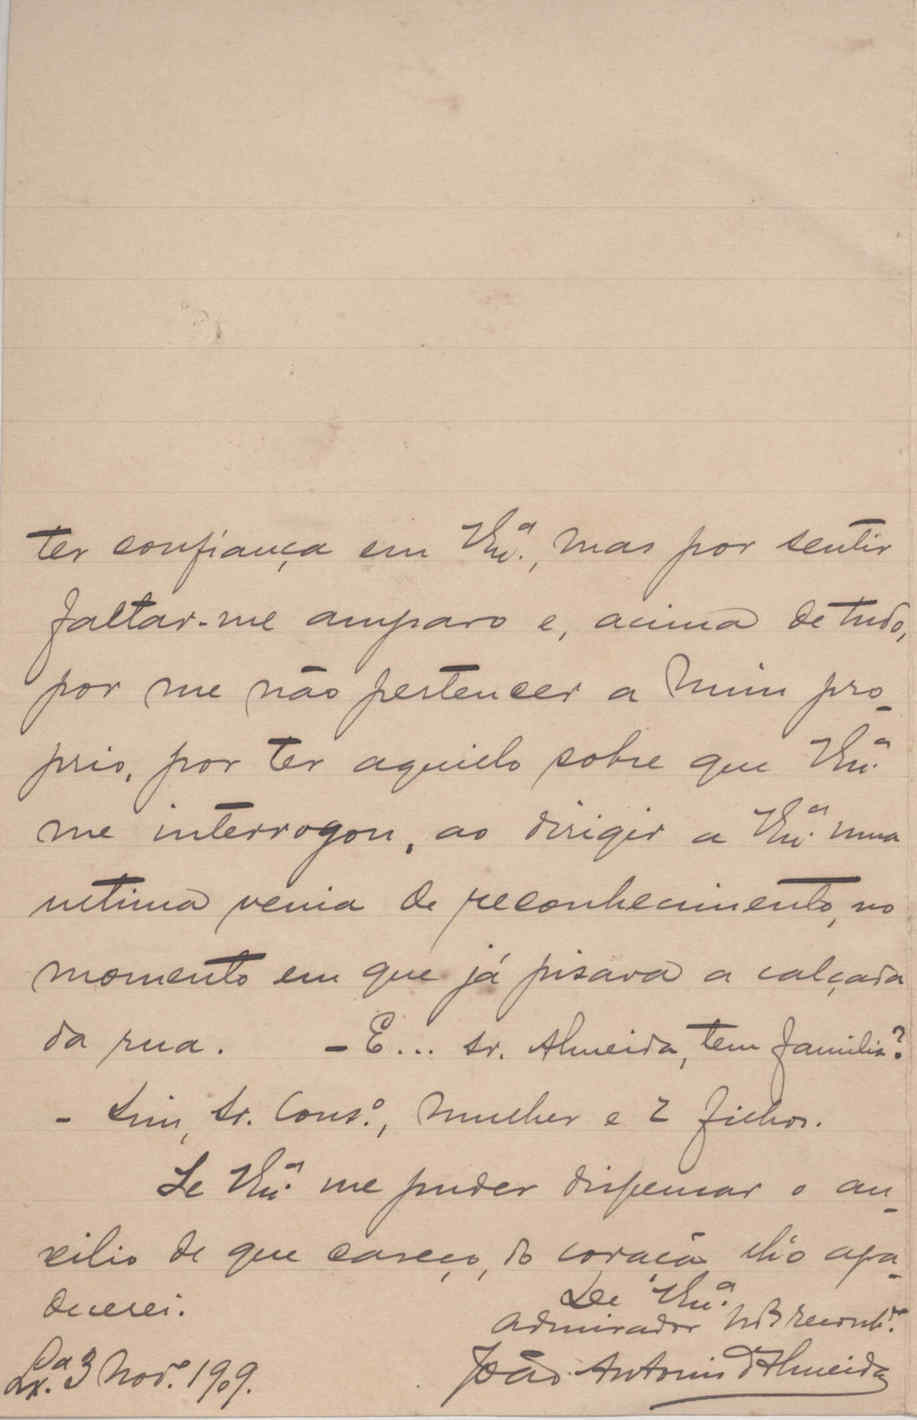 ter confiança em V.Ex.ª, mas por sentir
faltar-me amparo e, acima de tudo,
por me não pertencer a mim pro-
prio, por ter aquielo sobre que V.Ex.ª
me interrogou, ao dirigir a V.Ex.ª numa
ultima venia de reconhecimento, no
momento em que já pisava a calçada
da rua. - E... Sr. Almeida, tem familia?
- Sim, Sr. Cons.º, mulher e 2 filhos.
Se V.Ex.ª me puder dispensar o au-
xilio de que careço, do coração lh'o agra-
decerei.
De V.Ex.ª
admirador
Lx.ª 3 Nov.º 1909.
João Antonio d'Almeida